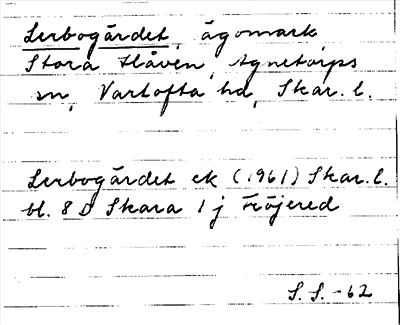 Lerbogärdet, ägomark,
Stora Slåven, Agnetorps
sn, Vartofta hd, Skar. l.
Lerbogärdet ek (1961) Skar. l.
bl. 8 D Skara 1 j Fröjered
S. S. -62